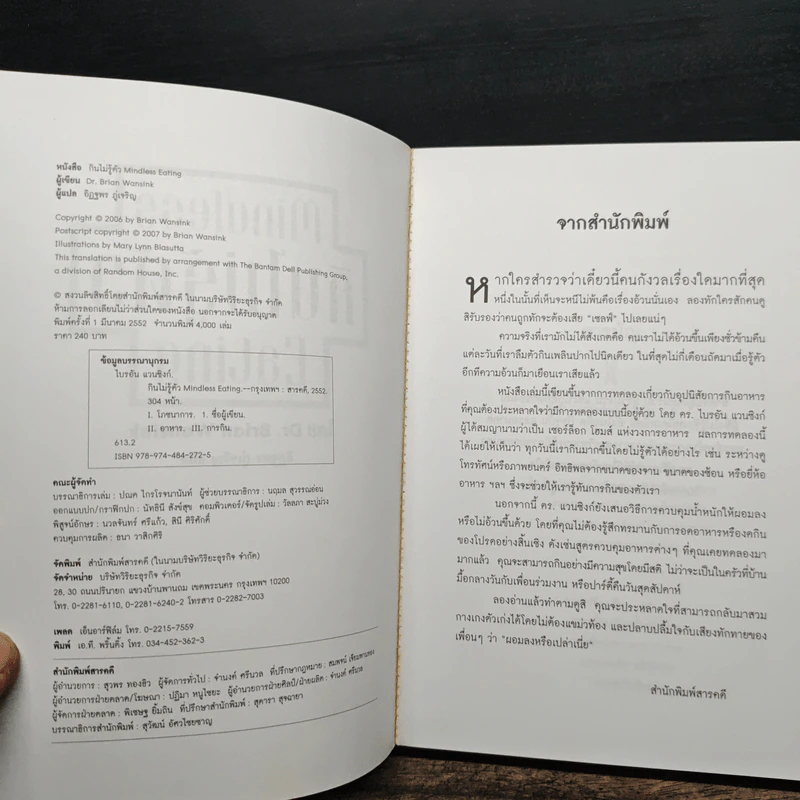 หนังสือ กินไม่รู้ตัว Mindless Eating
ผู้เขียน Dr. Brian Wansink
ผู้แปล อิฏฐพร ภู่เจริญ
Copyright © 2006 by Brian Wansink
Postscript copyright © 2007 by Brian Wansink
Illustrations by Mary Lynn Blasutta
This translation is published by arrangement with The Bantam Dell Publishing Group,
a division of Random House, Inc.
© สงวนลิขสิทธิ์โดยสำนักพิมพ์สารคดี ในนามบริษัทวิริยะธุรกิจ จำกัด
ห้ามการลอกเลียนไม่ว่าส่วนใดของหนังสือ นอกจากจะได้รับอนุญาต
พิมพ์ครั้งที่ 1 มีนาคม 2552 จำนวนพิมพ์ 4,000 เล่ม
ราคา 240 บาท
ข้อมูลบรรณานุกรม
ไบรอัน แวนซิงก์.
กินไม่รู้ตัว Mindless Eating.--กรุงเทพฯ : สารคดี, 2552.
304 หน้า.
I. โภชนาการ. 1. ชื่อผู้เขียน.
II. อาหาร. III. การกิน.
613.2
ISBN 978-974-484-272-5
คณะผู้จัดทำ
บรรณาธิการเล่ม : ปณต ไกรโรจนานันท์ ผู้ช่วยบรรณาธิการ : นฤมล สุวรรณอ่อน
ออกแบบปก/กราฟิกปก : นัทธินี สังข์สุข คอมพิวเตอร์/จัดรูปเล่ม : วัลลภา สะบู่ม่วง
พิสูจน์อักษร : นวลจันทร์ ศรีแก้ว, สินี ศิริศักดิ์
ควบคุมการผลิต : ธนา วาสิกศิริ
จัดพิมพ์ สำนักพิมพ์สารคดี (ในนามบริษัทวิริยะธุรกิจ จำกัด)
จัดจำหน่าย บริษัทวิริยะธุรกิจ จำกัด
28, 30 ถนนปรินายก แขวงบ้านพานถม เขตพระนคร กรุงเทพฯ 10200
โทร. 0-2281-6110, 0-2281-6240-2 โทรสาร 0-2282-7003
เพลต เอ็นอาร์ฟิล์ม โทร. 0-2215-7559
พิมพ์ เอ.ที. พริ้นติ้ง โทร. 034-452-362-3
สำนักพิมพ์สารคดี
ผู้อำนวยการ : สุวพร ทองธิว ผู้จัดการทั่วไป : จำนงค์ ศรีนวล ที่ปรึกษากฎหมาย : สมพจน์
ผู้อำนวยการฝ่ายตลาด/โฆษณา : ปฏิมา หนูไชยะ ผู้อำนวยการฝ่ายศิลป์/ฝ่ายผลิต : จำนงค์ ศรีนวล
ผู้จัดการฝ่ายตลาด : พิเชษฐ ยิ้มถิน ที่ปรึกษาสำนักพิมพ์ : สุดารา สุจฉายา
บรรณาธิการสำนักพิมพ์ : สุวัฒน์ อัศวไชยชาญ
จากสำนักพิมพ์
หากใครสำรวจว่าเดี๋ยวนี้คนกังวลเรื่องใดมากที่สุด
หนึ่งในนั้นที่เห็นจะหนีไม่พ้นคือเรื่องอ้วนนั่นเอง ลองทักใครสักคนดู
สิรับรองว่าคนถูกทักจะต้องเสีย "เซลฟ์" ไปเลยแน่ๆ
ความจริงที่เรามักไม่ได้สังเกตคือ คนเราไม่ได้อ้วนขึ้นเพียงชั่วข้ามคืน
แต่ละวันที่เราลืมตัวกินเพลินปากไปนิดเดียว ในที่สุดไม่กี่เดือนถัดมาเมื่อรู้ตัว
อีกทีความอ้วนก็มาเยือนเราเสียแล้ว
หนังสือเล่มนี้เขียนขึ้นจากการทดลองเกี่ยวกับอุปนิสัยการกินอาหาร
ที่คุณต้องประหลาดใจว่ามีการทดลองแบบนี้อยู่ด้วย โดย ดร. ไบรอัน แวนซิงก์
ผู้ได้สมญานามว่าเป็น เชอร์ล็อก โฮมส์ แห่งวงการอาหาร ผลการทดลองนี้
ได้เผยให้เห็นว่า ทุกวันนี้เรากินมากขึ้นโดยไม่รู้ตัวได้อย่างไร เช่น ระหว่างดู
โทรทัศน์หรือภาพยนตร์ อิทธิพลจากขนาดของจาน ขนาดของช้อน หรือยี่ห้อ
อาหาร ฯลฯ ซึ่งจะช่วยให้เรารู้ทันการกินของตัวเรา
นอกจากนี้ ดร. แวนซิงก์ยังเสนอวิธีการควบคุมน้ำหนักให้ผอมลง
หรือไม่อ้วนขึ้นด้วย โดยที่คุณไม่ต้องรู้สึกทรมานกับการอดอาหารหรืองดกิน
ของโปรดอย่างสิ้นเชิง ดังเช่นสูตรควบคุมอาหารต่างๆ ที่คุณเคยทดลองมา
มากแล้ว คุณจะสามารถกินอย่างมีความสุขโดยมีสติ ไม่ว่าจะเป็นในครัวที่บ้าน
มื้อกลางวันกับเพื่อนร่วมงาน หรือปาร์ตี้คืนวันสุดสัปดาห์
ลองอ่านแล้วทำตามดูสิ คุณจะประหลาดใจที่สามารถกลับมาสวม
กางเกงตัวเก่งได้โดยไม่ต้องแขม่วท้อง และปลาบปลื้มใจกับเสียงทักทายของ
เพื่อนๆ ว่า "ผอมลงหรือเปล่าเนี่ย"
สำนักพิมพ์สารคดี